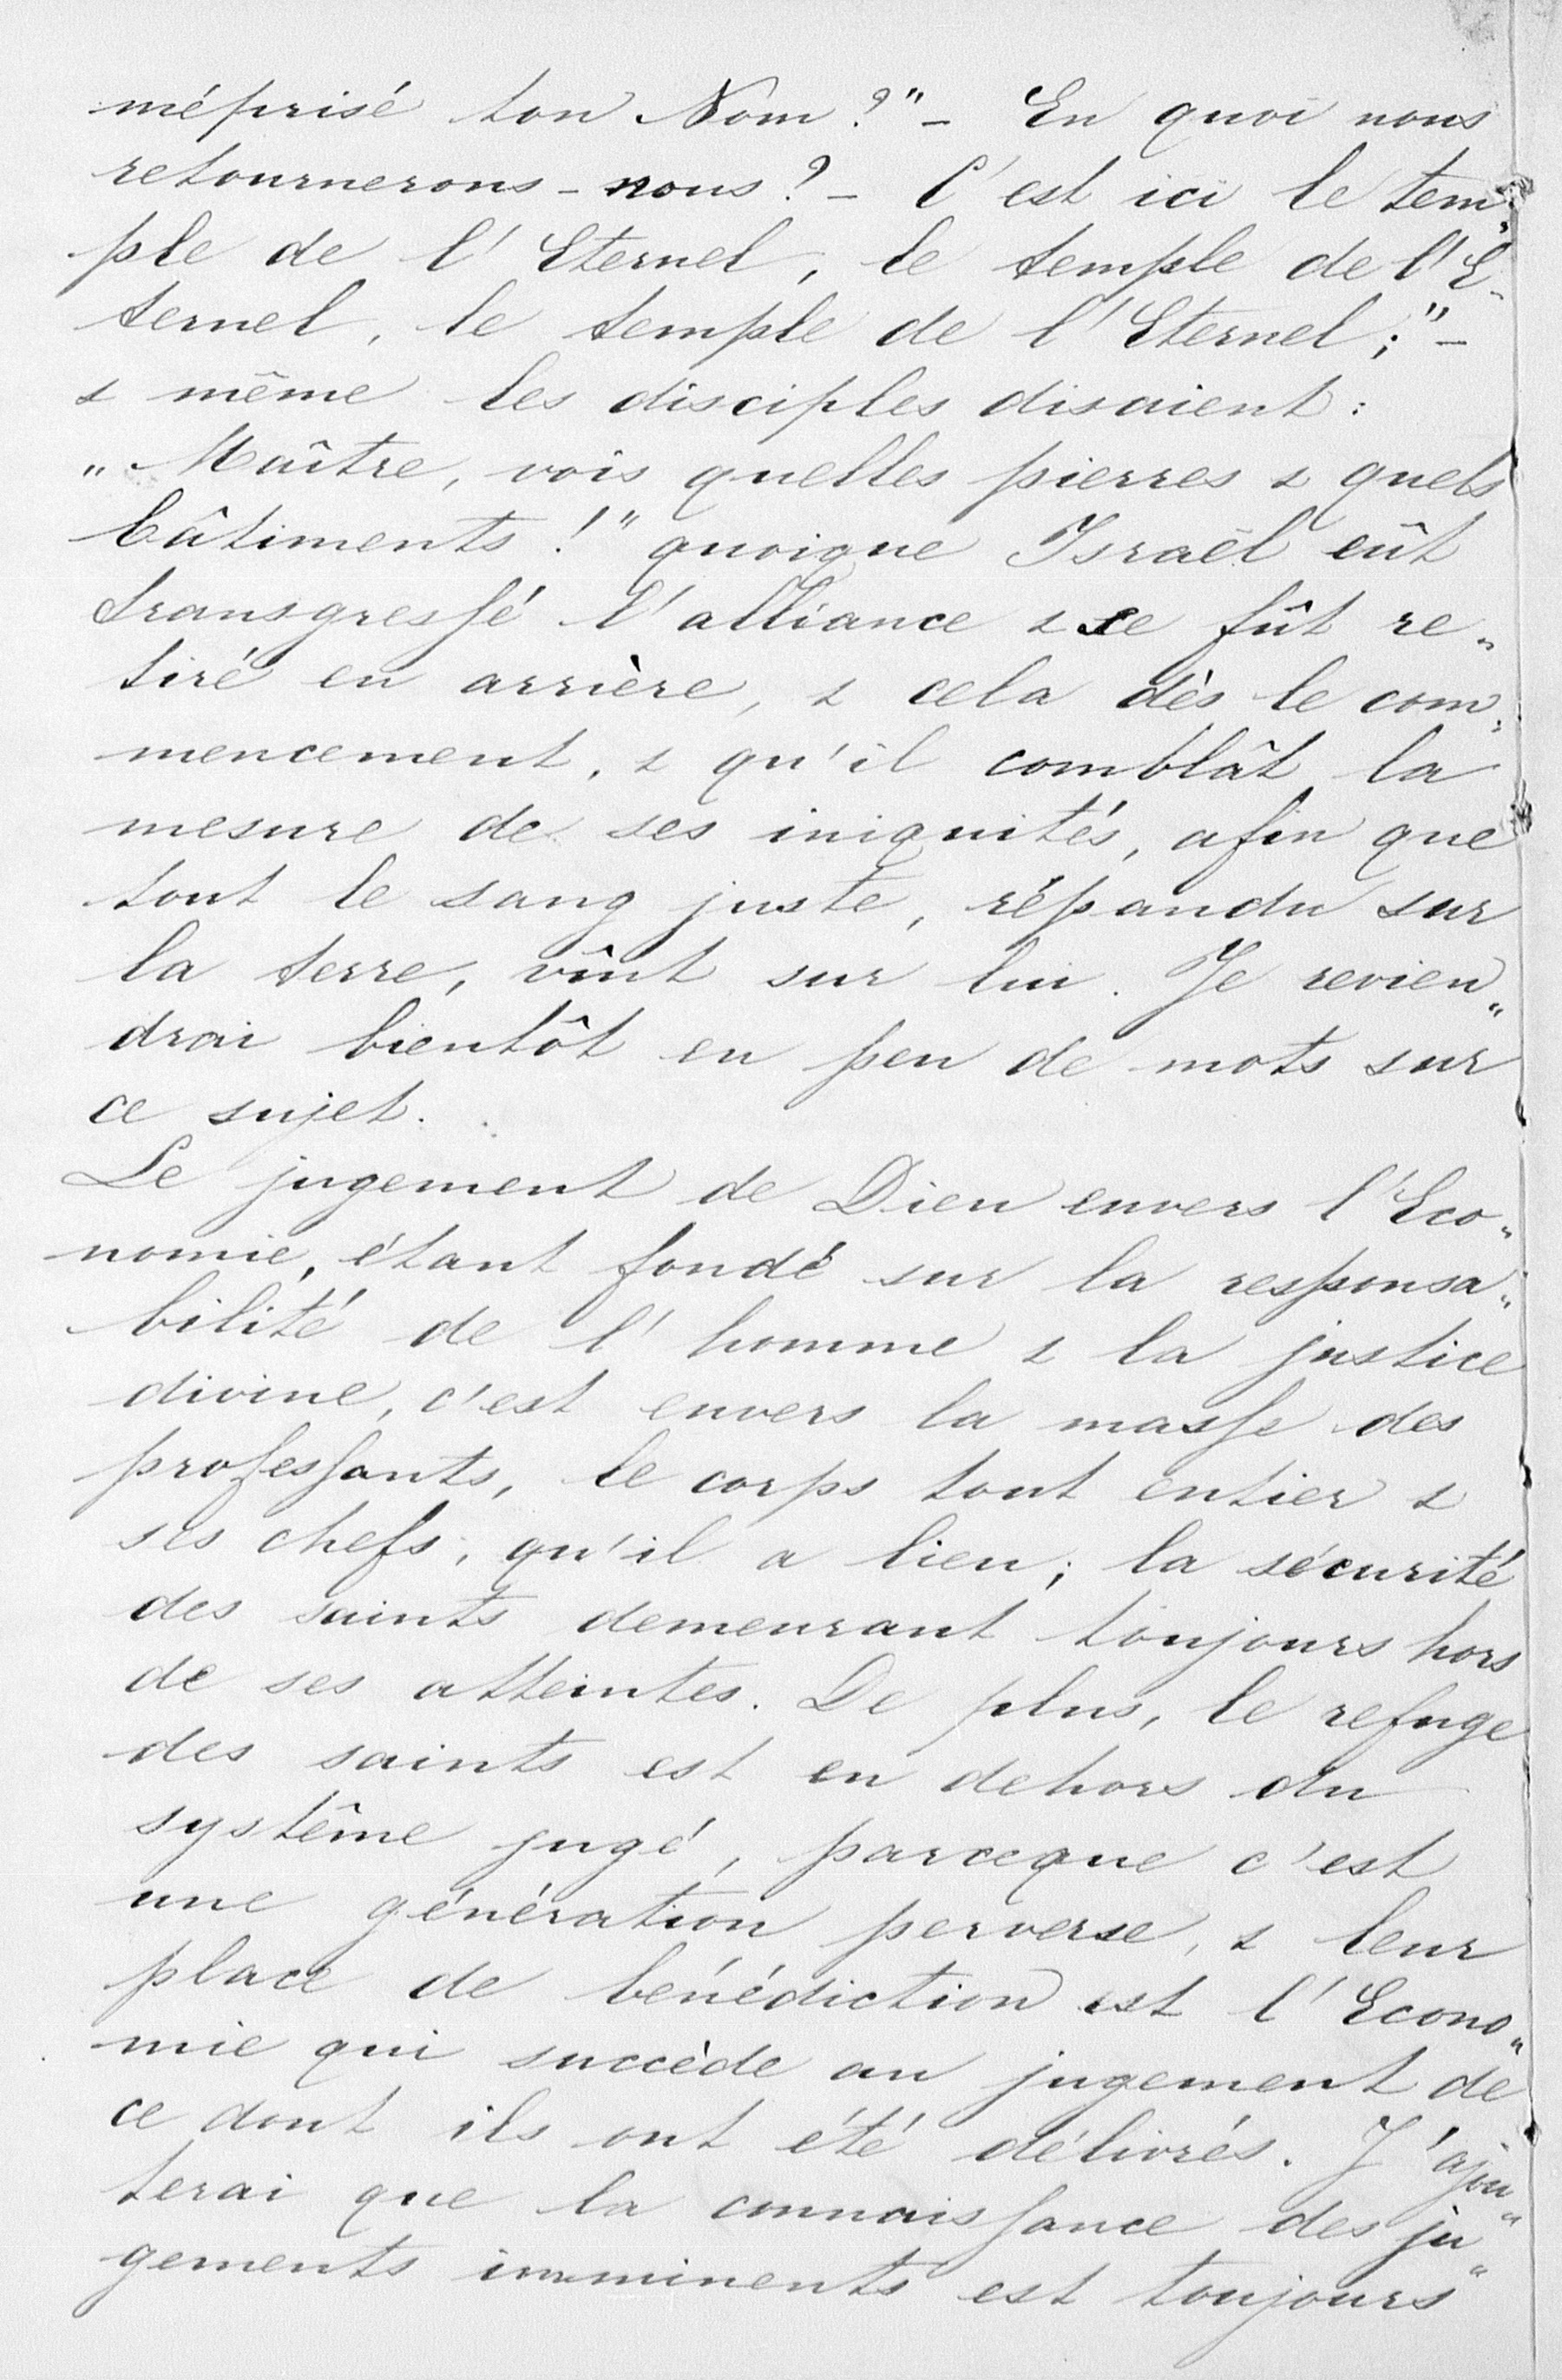 méprisé ton Nom?"— En quoi nous
retournerons-nous?— C'est ici le tem„
ple de l'Eternel, le temple de l'E„
ternel, le temple de l'Eternel;"—
& même les disciples disaient:
„Maître, vois quelles pierres & quels
bâtiments!" quoique Israël eût
transgressé l'alliance & se fût re„
tiré en arrière, & cela dès le com„
mencement, & qu'il comblât la
mesure de ses iniquités, afin que
tout le sang juste, répandu sur
la terre, vînt sur lui. Je revien„
drai bientôt en peu de mots sur
ce sujet.
Le jugement de Dieu envers l'Eco„
nomie, étant fondé sur la responsa„
bilité de l'homme & la justice
divine, c'est envers la masse des
professants, le corps tout entier &
ses chefs, qu'il a lieu; la sécurité
des saints demeurant toujours hors
de ses atteintes. De plus, le refuge
des saints est en dehors du
systême jugé, parceque c'est
une génération perverse, & leur
place de bénédiction est l'Econo„
mie qui succède au jugement de
ce dont ils ont été délivrés. J'ajou„
terai que la connaissance des ju„
gements imminents est toujours